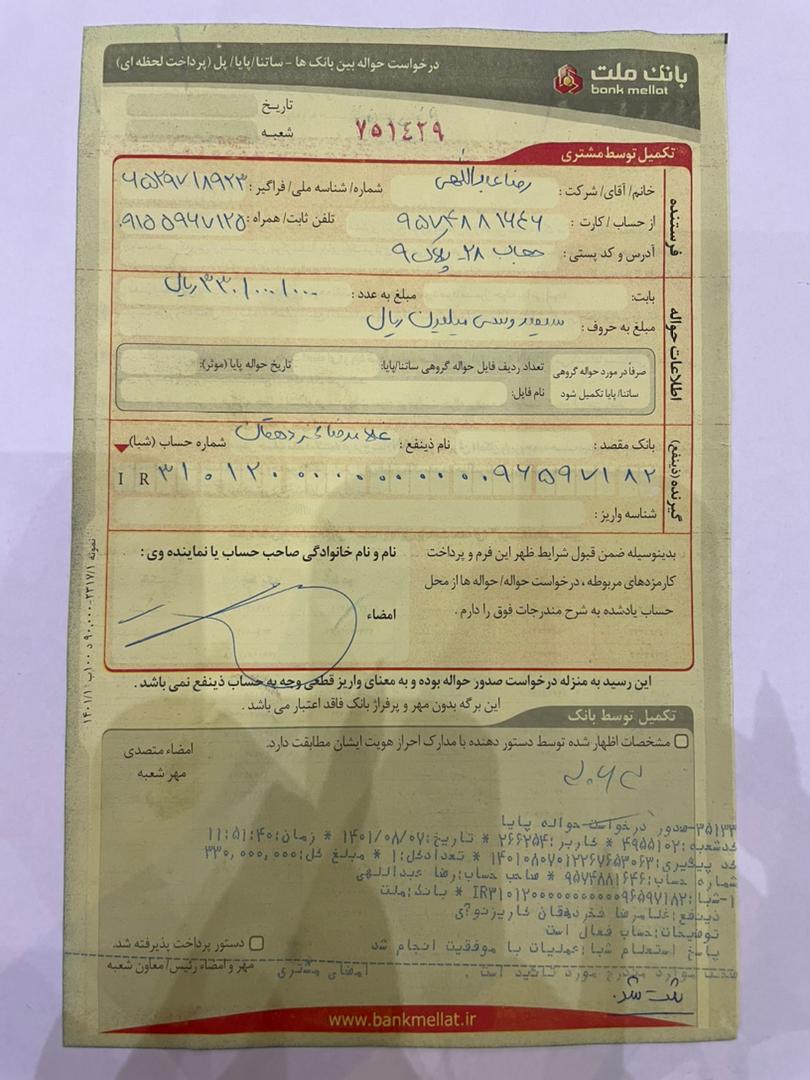 بانک ملت
bank mellat
درخواست حواله بین بانک ها - ساتنا/پایا/ پل (پرداخت لحظه ای)
تاریخ
شعبه
۷۵۱۴۲۹
تکمیل توسط مشتری
فرستنده
خانم/ آقای/ شرکت: رضا عبداللهی شماره/ شناسه ملی/ فراگیر:
از حساب / کارت : ۹۵۷۴۸۸۱۶۴۶ تلفن ثابت/ همراه: ۰۹۱۵۵۹۴۷۱۲۵
آدرس و کد پستی : حجاب ۲۸ - پلاک ۹
اطلاعات حواله
بابت: مبلغ به عدد : ۳۳۰/۰۰۰/۰۰۰ ریال
مبلغ به حروف : سیصد و سی میلیون ریال
صرفاً در مورد حواله گروهی ساتنا/پایا تکمیل شود
تعداد ردیف فایل حواله گروهی ساتنا/پایا: تاریخ حواله پایا (موثر):
نام فایل:
گیرنده (ذینفع)
بانک مقصد : نام ذینفع : غلامرضا فخر دهقان شماره حساب (شبا)
IR ۳۱۰۱۲۰۰۰۰۰۰۰۰۰۰۰۹۶۵۹۷۱۸۲
شناسه واریز :
بدینوسیله ضمن قبول شرایط ظهر این فرم و پرداخت
کارمزدهای مربوطه ، درخواست حواله/ حواله ها از محل
حساب یادشده به شرح مندرجات فوق را دارم .
نام و نام خانوادگی صاحب حساب یا نماینده وی :
امضاء
این رسید به منزله درخواست صدور حواله بوده و به معنای واریز قطعی وجه به حساب ذینفع نمی باشد .
این برگه بدون مهر و پرفراژ بانک فاقد اعتبار می باشد .
تکمیل توسط بانک
مشخصات اظهار شده توسط دستور دهنده با مدارک احراز هویت ایشان مطابقت دارد.
امضاء متصدی
مهر شعبه
۳۵۱۳۳-صدور درخواست حواله پایا
کدشعبه:۴۹۵۵۱۰۲ * کاربر:۲۶۶۲۵۴ * تاریخ:۱۴۰۱/۰۸/۰۷ * زمان:۱۱:۵۱:۴۰
کد پیگیری:۱۴۰۱۰۸۰۷۰۱۲۲۶۷۶۵۳۰۶۳ * تعدادکل:۱ * مبلغ کل:۳۳۰,۰۰۰,۰۰۰
شماره حساب:۹۵۷۴۸۸۱۶۴۶ * صاحب حساب:رضا عبداللهی
۱-شبا:IR۳۱۰۱۲۰۰۰۰۰۰۰۰۰۰۰۹۶۵۹۷۱۸۲ * بانک:ملت
ذینفع:غلامرضا فخردهقان کاریزنو?ی
توضیحات:حساب فعال است
پاسخ استعلام شبا:عملیات با موفقیت انجام شد
موارد مورد تائید است . امضای مشتری
دستور پرداخت پذیرفته شد.
مهر و امضاء رئیس/ معاون شعبه
ثبت شد.
www.bankmellat.ir